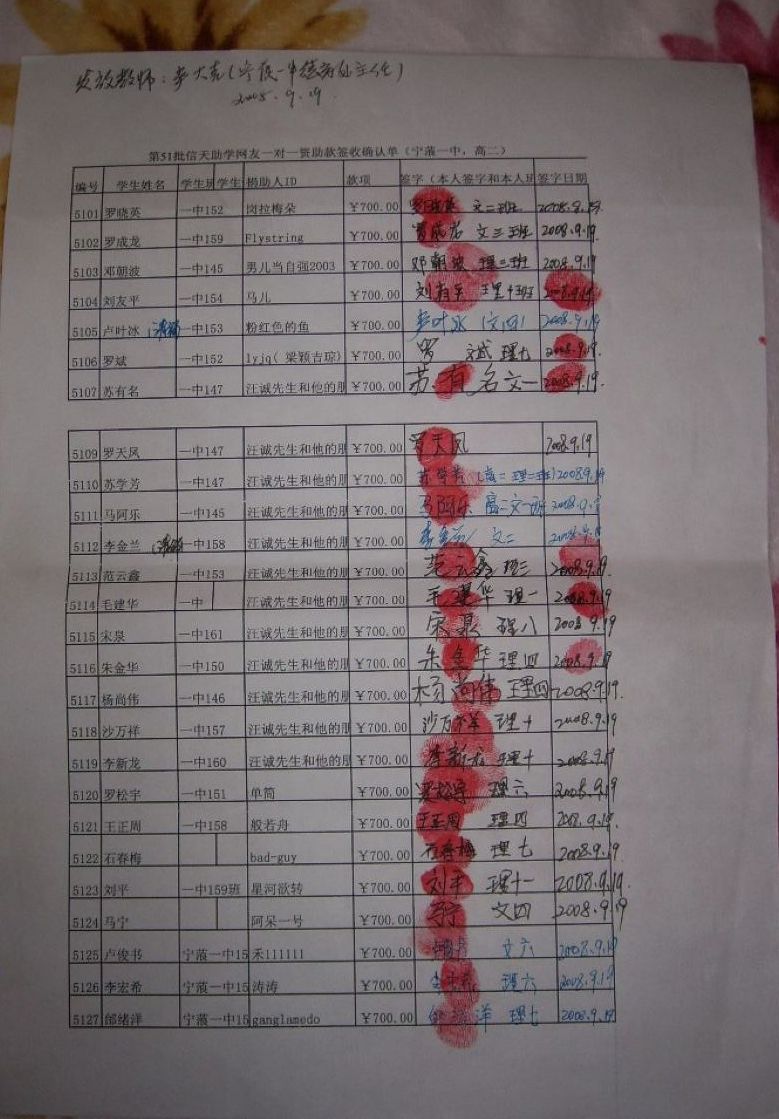 发放教师：李大亮(宁蒗一中德育处主任)
2008.9.19.
第51批信天助学网友一对一资助款签收确认单（宁蒗一中，高二）
编号 学生姓名 学生班 学生 捐助人ID 款项 签字（本人签字和本人班 签字日期
5101 罗晓英 一中152 岗拉梅朵 ￥700.00 罗晓英 文二班 2008.9.19.
5102 罗成龙 一中159 Flystring ￥700.00 罗成龙 文三班 2008.9.19
5103 邓朝波 一中145 男儿当自强2003 ￥700.00 邓朝波 理三班 2008.9.19
5104 刘友平 一中154 马儿 ￥700.00 刘友平 理十班 2008.9.19.
5105 卢叶冰 一中153 粉红色的鱼 ￥700.00 卢叶冰 (文四) 2008.9.19
5106 罗斌 一中152 lyjq( 梁颖吉琼) ￥700.00 罗斌 理七 2008.9.19.
5107 苏有名 一中147 汪诚先生和他的朋 ￥700.00 苏有名 文一 2008.9.19.
5109 罗天凤 一中147 汪诚先生和他的朋 ￥700.00 罗天凤 2008.9.19
5110 苏学芳 一中147 汪诚先生和他的朋 ￥700.00 苏学芳 (高二 理二班) 2008.9.19
5111 马阿乐 一中145 汪诚先生和他的朋 ￥700.00 马阿乐 高二文一班 2008.9.19
5112 李金兰 一中158 汪诚先生和他的朋 ￥700.00 李金兰 文二 2008.9.19
5113 范云鑫 一中153 汪诚先生和他的朋 ￥700.00 范云鑫 理三 2008.9.19.
5114 毛建华 一中 汪诚先生和他的朋 ￥700.00 毛建华 理一 2008.9.19.
5115 宋泉 一中161 汪诚先生和他的朋 ￥700.00 宋泉 理八 2008.9.19
5116 朱金华 一中150 汪诚先生和他的朋 ￥700.00 朱金华 理四 2008.9.19
5117 杨尚伟 一中146 汪诚先生和他的朋 ￥700.00 杨尚伟 理四 2008.9.19.
5118 沙万祥 一中157 汪诚先生和他的朋 ￥700.00 沙万祥 理十 2008.9.19
5119 李新龙 一中160 汪诚先生和他的朋 ￥700.00 李新龙 理十 2008.9.19
5120 罗松宇 一中151 单筒 ￥700.00 罗松宇 理六 2008.9.19.
5121 王正周 一中158 般若舟 ￥700.00 王正周 理四 2008.9.19.
5122 石春梅 bad-guy ￥700.00 石春梅 理七 2008.9.19.
5123 刘平 一中159班 星河欲转 ￥700.00 刘平 理十一 2008.9.19.
5124 马宁 阿呆一号 ￥700.00 马宁 文四 2008.9.19
5125 卢俊书 宁蒗一中15 禾111111 ￥700.00 文六 2008.9.19
5126 李宏希 宁蒗一中15 涛涛 ￥700.00 理六 2008.9.19
5127 邰绪洋 宁蒗一中15 ganglamedo ￥700.00 邰绪洋 理七 2008.9.19.